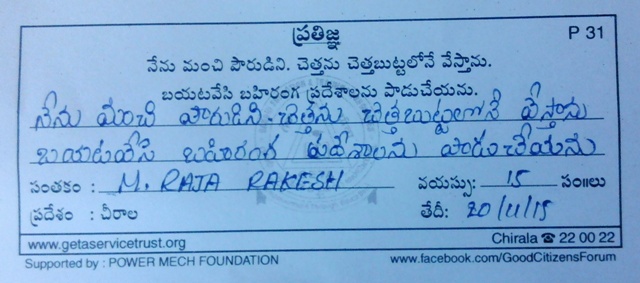 ప్రతిజ్ఞ P 31
నేను మంచి పౌరుడిని. చెత్తను చెత్తబుట్టలోనే వేస్తాను.
బయటవేసి బహిరంగ ప్రదేశాలను పాడుచేయను.
నేను మంచి పౌరుడిని. చెత్తను చెత్తబుట్టలోనే వేస్తాను
బయటవేసి బహిరంగ ప్రదేశాలను పాడుచేయను
సంతకం : M. RAJA RAKESH వయస్సు: 15 సం॥లు
ప్రదేశం : చీరాల తేదీ: 20/11/15
www.getaservicetrust.org Chirala ☎ 22 00 22
Supported by : POWER MECH FOUNDATION www.facebook.com/GoodCitizensForum